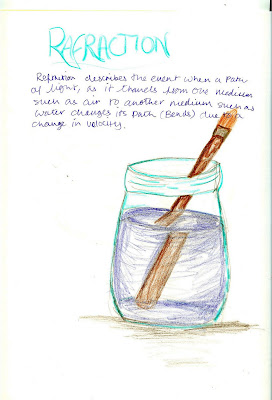 REFRACTION
Refraction describes the event when a path
of light, as it travels from one medium
such as air to another medium such as
water changes its path (Bends) due to a
change in velocity.